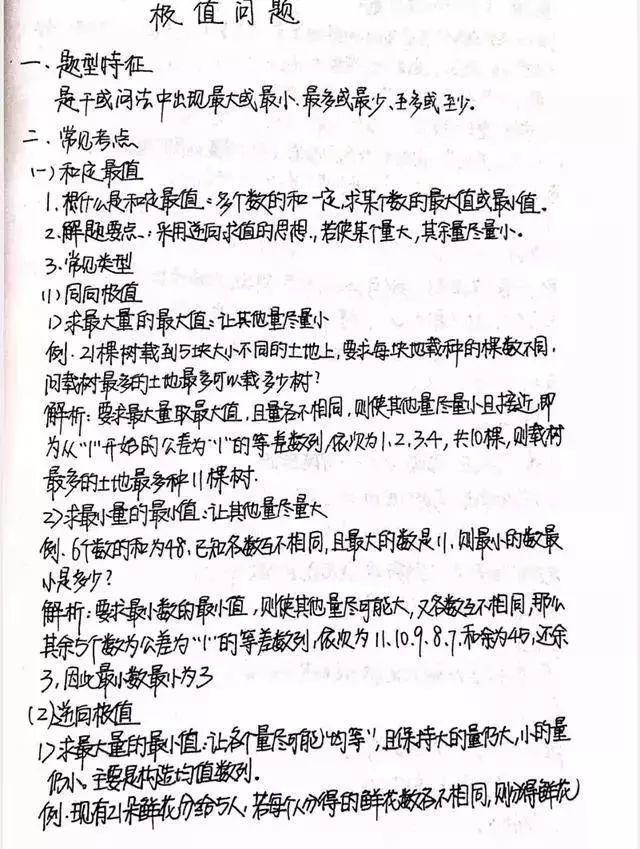 极值问题
一、题型特征
题干或问法中出现最大或最小、最多或最少、至多或至少。
二、常见考点
(一)和定最值
1.概什么是和定最值：多个数的和一定，求某个数的最大值或最小值。
2.解题要点：采用逆向求值的思想，若使某个量大，其余量尽量小。
3.常见类型
(1)同向极值
1>求最大量的最大值：让其他量尽量小
例.21棵树载到5块大小不同的土地上，要求每块地载种的棵数不同，
问载树最多的土地最多可以载多少树？
解析：要求最大量取最大值，且量各不相同，则使其他量尽量小且接近，即
为从"1"开始的公差为"1"的等差数列，依次为1、2、3、4，共10棵，则载树
最多的土地最多种11棵树.
2>求最小量的最小值：让其他量尽量大
例.6个数的和为48，已知各数互不相同，且最大的数是11，则最小的数最
小是多少？
解析：要求最小数的最小值，则使其他量尽可能大，又各数互不相同，那么
其余5个数为公差为"1"的等差数列，依次为11、10、9、8、7，和余为45，还余
3，因此最小数最小为3
(2)逆向极值
1>求最大量的最小值：让各个量尽可能"均等"，且保持大的量仍大，小的量
仍小。主要是构造均值数列。
例.现有21朵鲜花分给5人，若每个人分得的鲜花数各不相同，则分得鲜花